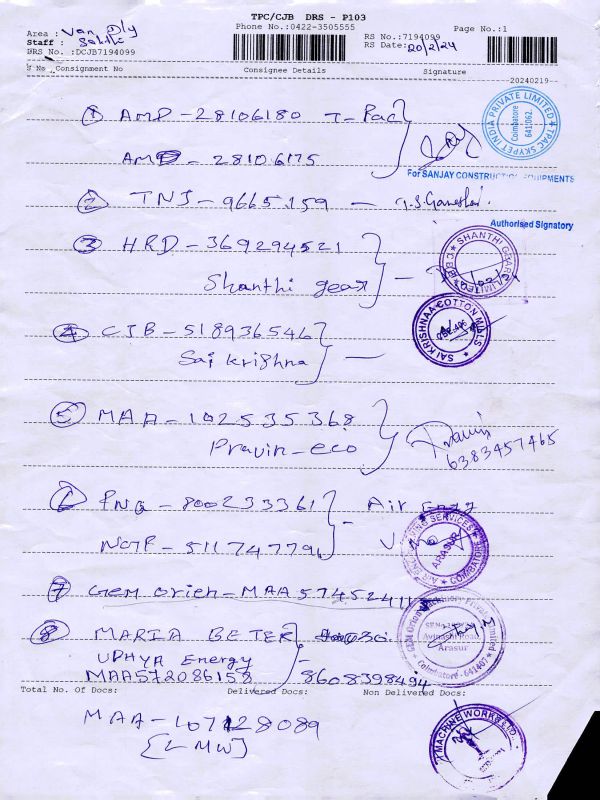 TPC/CJB DRS - P103
Phone No.:0422-3505555
Page No.:1
Area : Van Dly
Staff : Sakthi
DRS No. :DCJB7194099
RS No.:7194099
RS Date: 20/2/24
S No Consignment No Consignee Details Signature
20240219
1 AMD - 28106180 T-Pac
AMD - 28106175
TPAC SKYPET INDIA PRIVATE LIMITED
Coimbatore
641062.
For SANJAY CONSTRUCTION EQUIPMENTS
2 TNJ - 9665159 -
Authorised Signatory
3 HRD - 369294521
Shanthi gear -
SHANTHI GEARS LIMITED
4 CJB - 518936546
Sai krishna
SAI KRISHNAA COTTON MILLS
5 MAA - 102535368
Pravin - eco
Pravin
6383457465
6 PNQ - 800233361 - Air
511747791
ARASUR
COIMBATORE
7 Gem Orien - MAA 57452411
GEM Orion Machinery Private Limited
Avinashi Road
Arasur
Coimbatore - 641407
8 MARIA BETER
UDHYA Energy
MAA572086158 - 8608398494
Total No. Of Docs: Delivered Docs: Non Delivered Docs:
MAA - 107128089
[LMW]
MACHINE WORKS LTD.